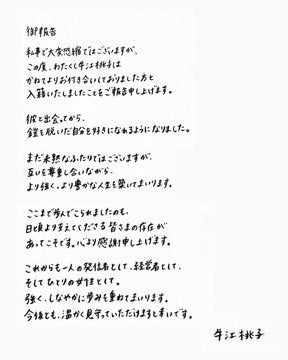 御報告
私事で大変恐縮ではございますが、
この度、わたくし牛江桃子は
かねてよりお付き合いしておりました方と
入籍いたしましたことをご報告申し上げます。
彼と出会ってから、
鎧を脱いだ自分を好きになれるようになりました。
まだ未熟なふたりではございますが、
互いを尊重し合いながら、
より強く、より豊かな人生を築いてまいります。
ここまで歩んでこられましたのも、
日頃より支えてくださる皆さまの存在が
あってこそです。心より感謝申し上げます。
これからも一人の発信者として、経営者として、
そしてひとりの女性として、
強く、しなやかに歩みを重ねてまいります。
今後とも、温かく見守っていただけますと幸いです。
牛江桃子